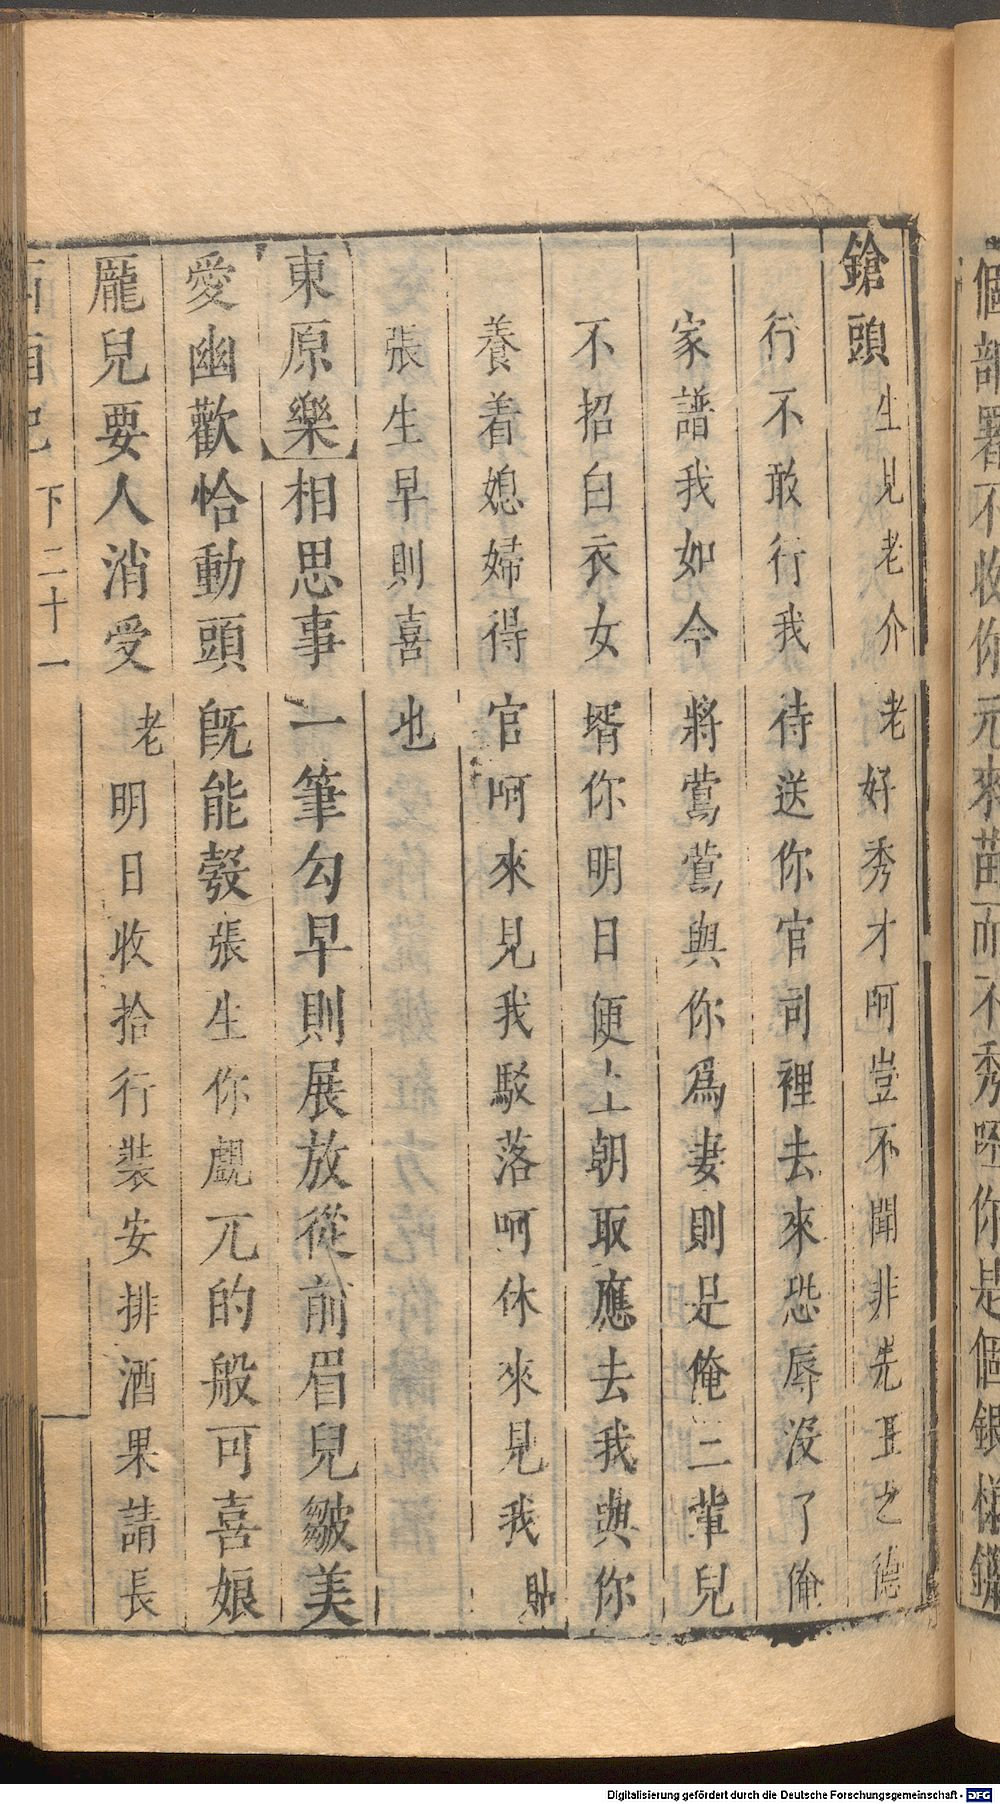 個部署不收你元來苗而不秀呸你是個銀樣鑞
鎗頭生見老介老好秀才呵豈不聞非先王之德
行不敢行我待送你官司裡去來恐辱沒了俺
家譜我如今將鶯鶯與你爲妻則是俺三輩兒
不招白衣女壻你明日便上朝取應去我與你
養着媳婦得官呵來見我駁落呵休來見我貼
張生早則喜也
東原樂相思事一筆勾早則展放從前眉兒皺美
愛幽歡恰動頭旣能彀張生你覷兀的般可喜娘
龐兒要人消受老明日收拾行裝安排酒果請長
西廂記 下二十一
Digitalisierung gefördert durch die Deutsche Forschungsgemeinschaft - DFG